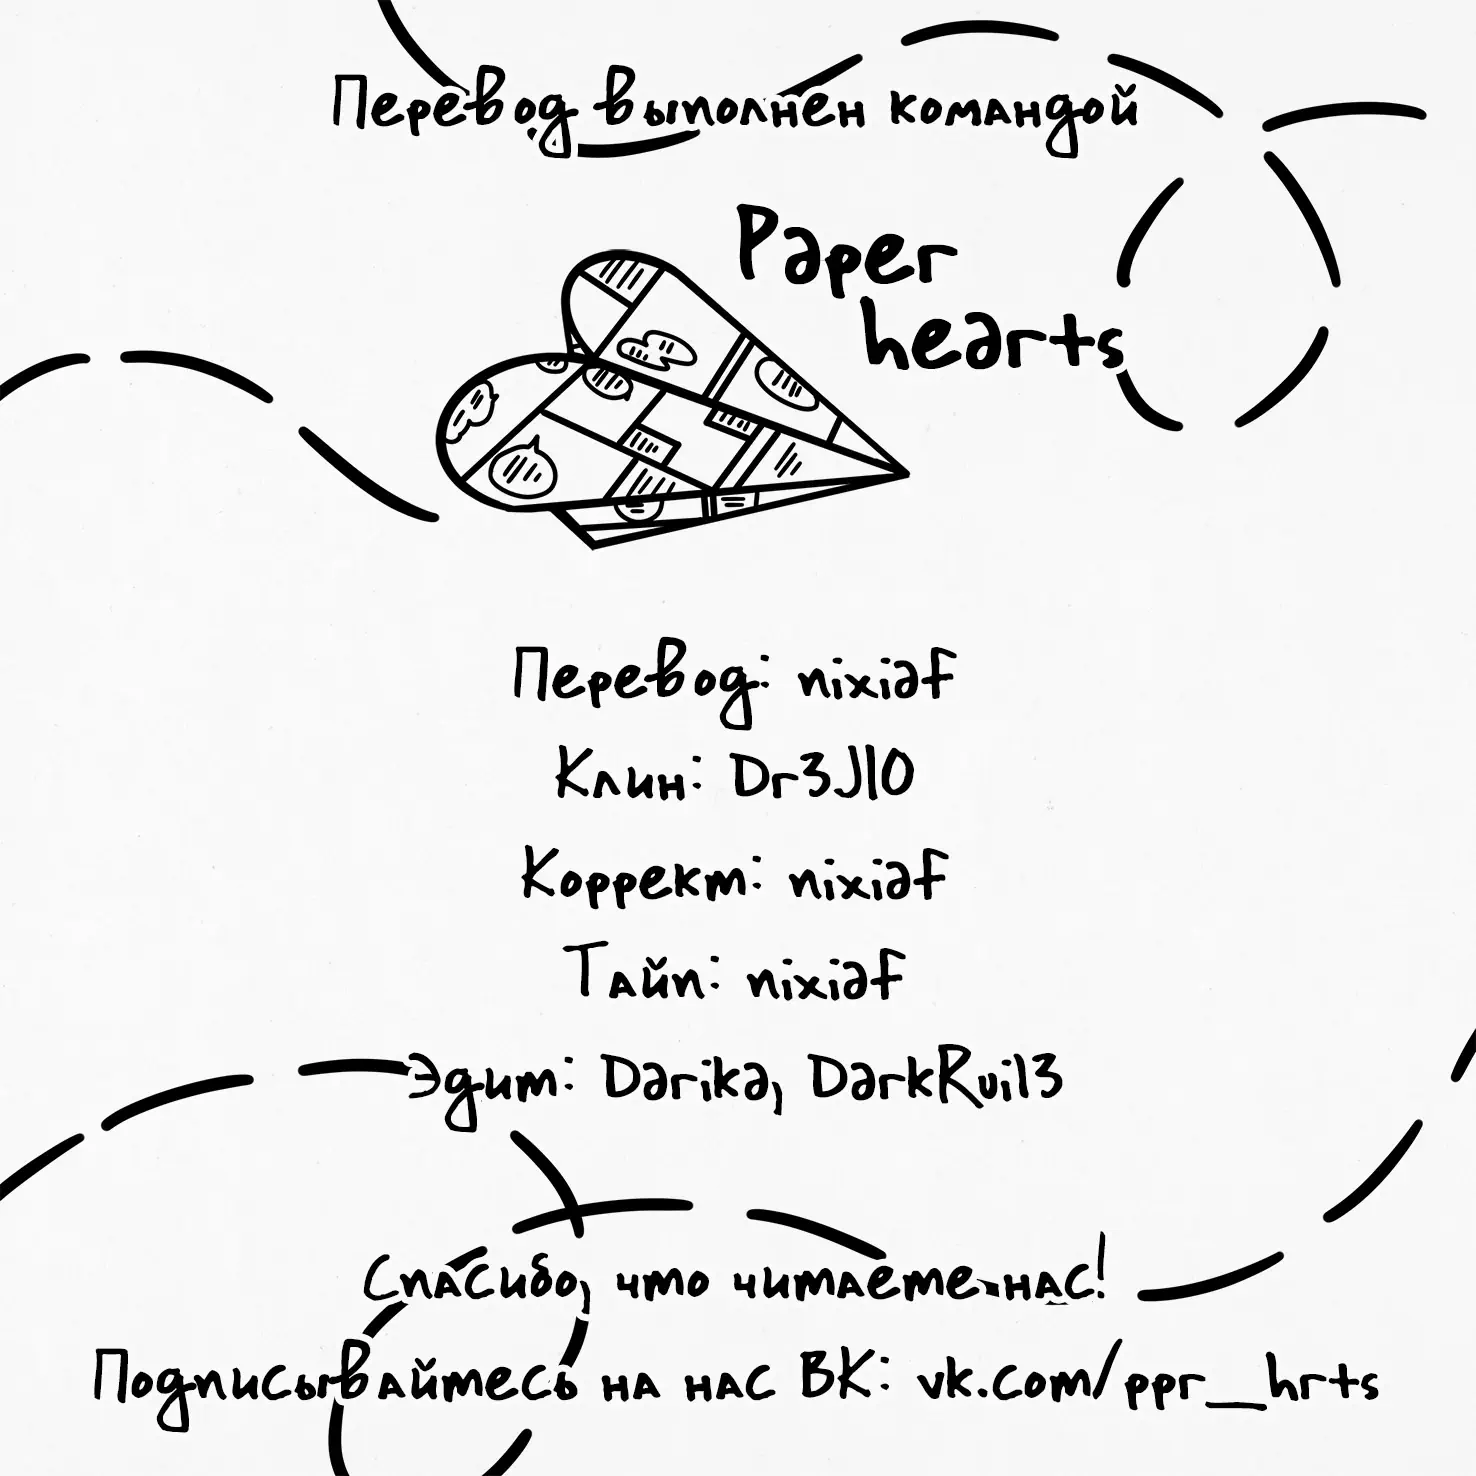 Перевод выполнен командой
Paper
hearts
Перевод: nixiaf
Клин: Dr3JlO
Коррект: nixiaf
Тайп: nixiaf
Эдит: Darika, DarkRuil3
Спасибо, что читаете нас!
Подписывайтесь на нас ВК: vk.com/ppr_hrts